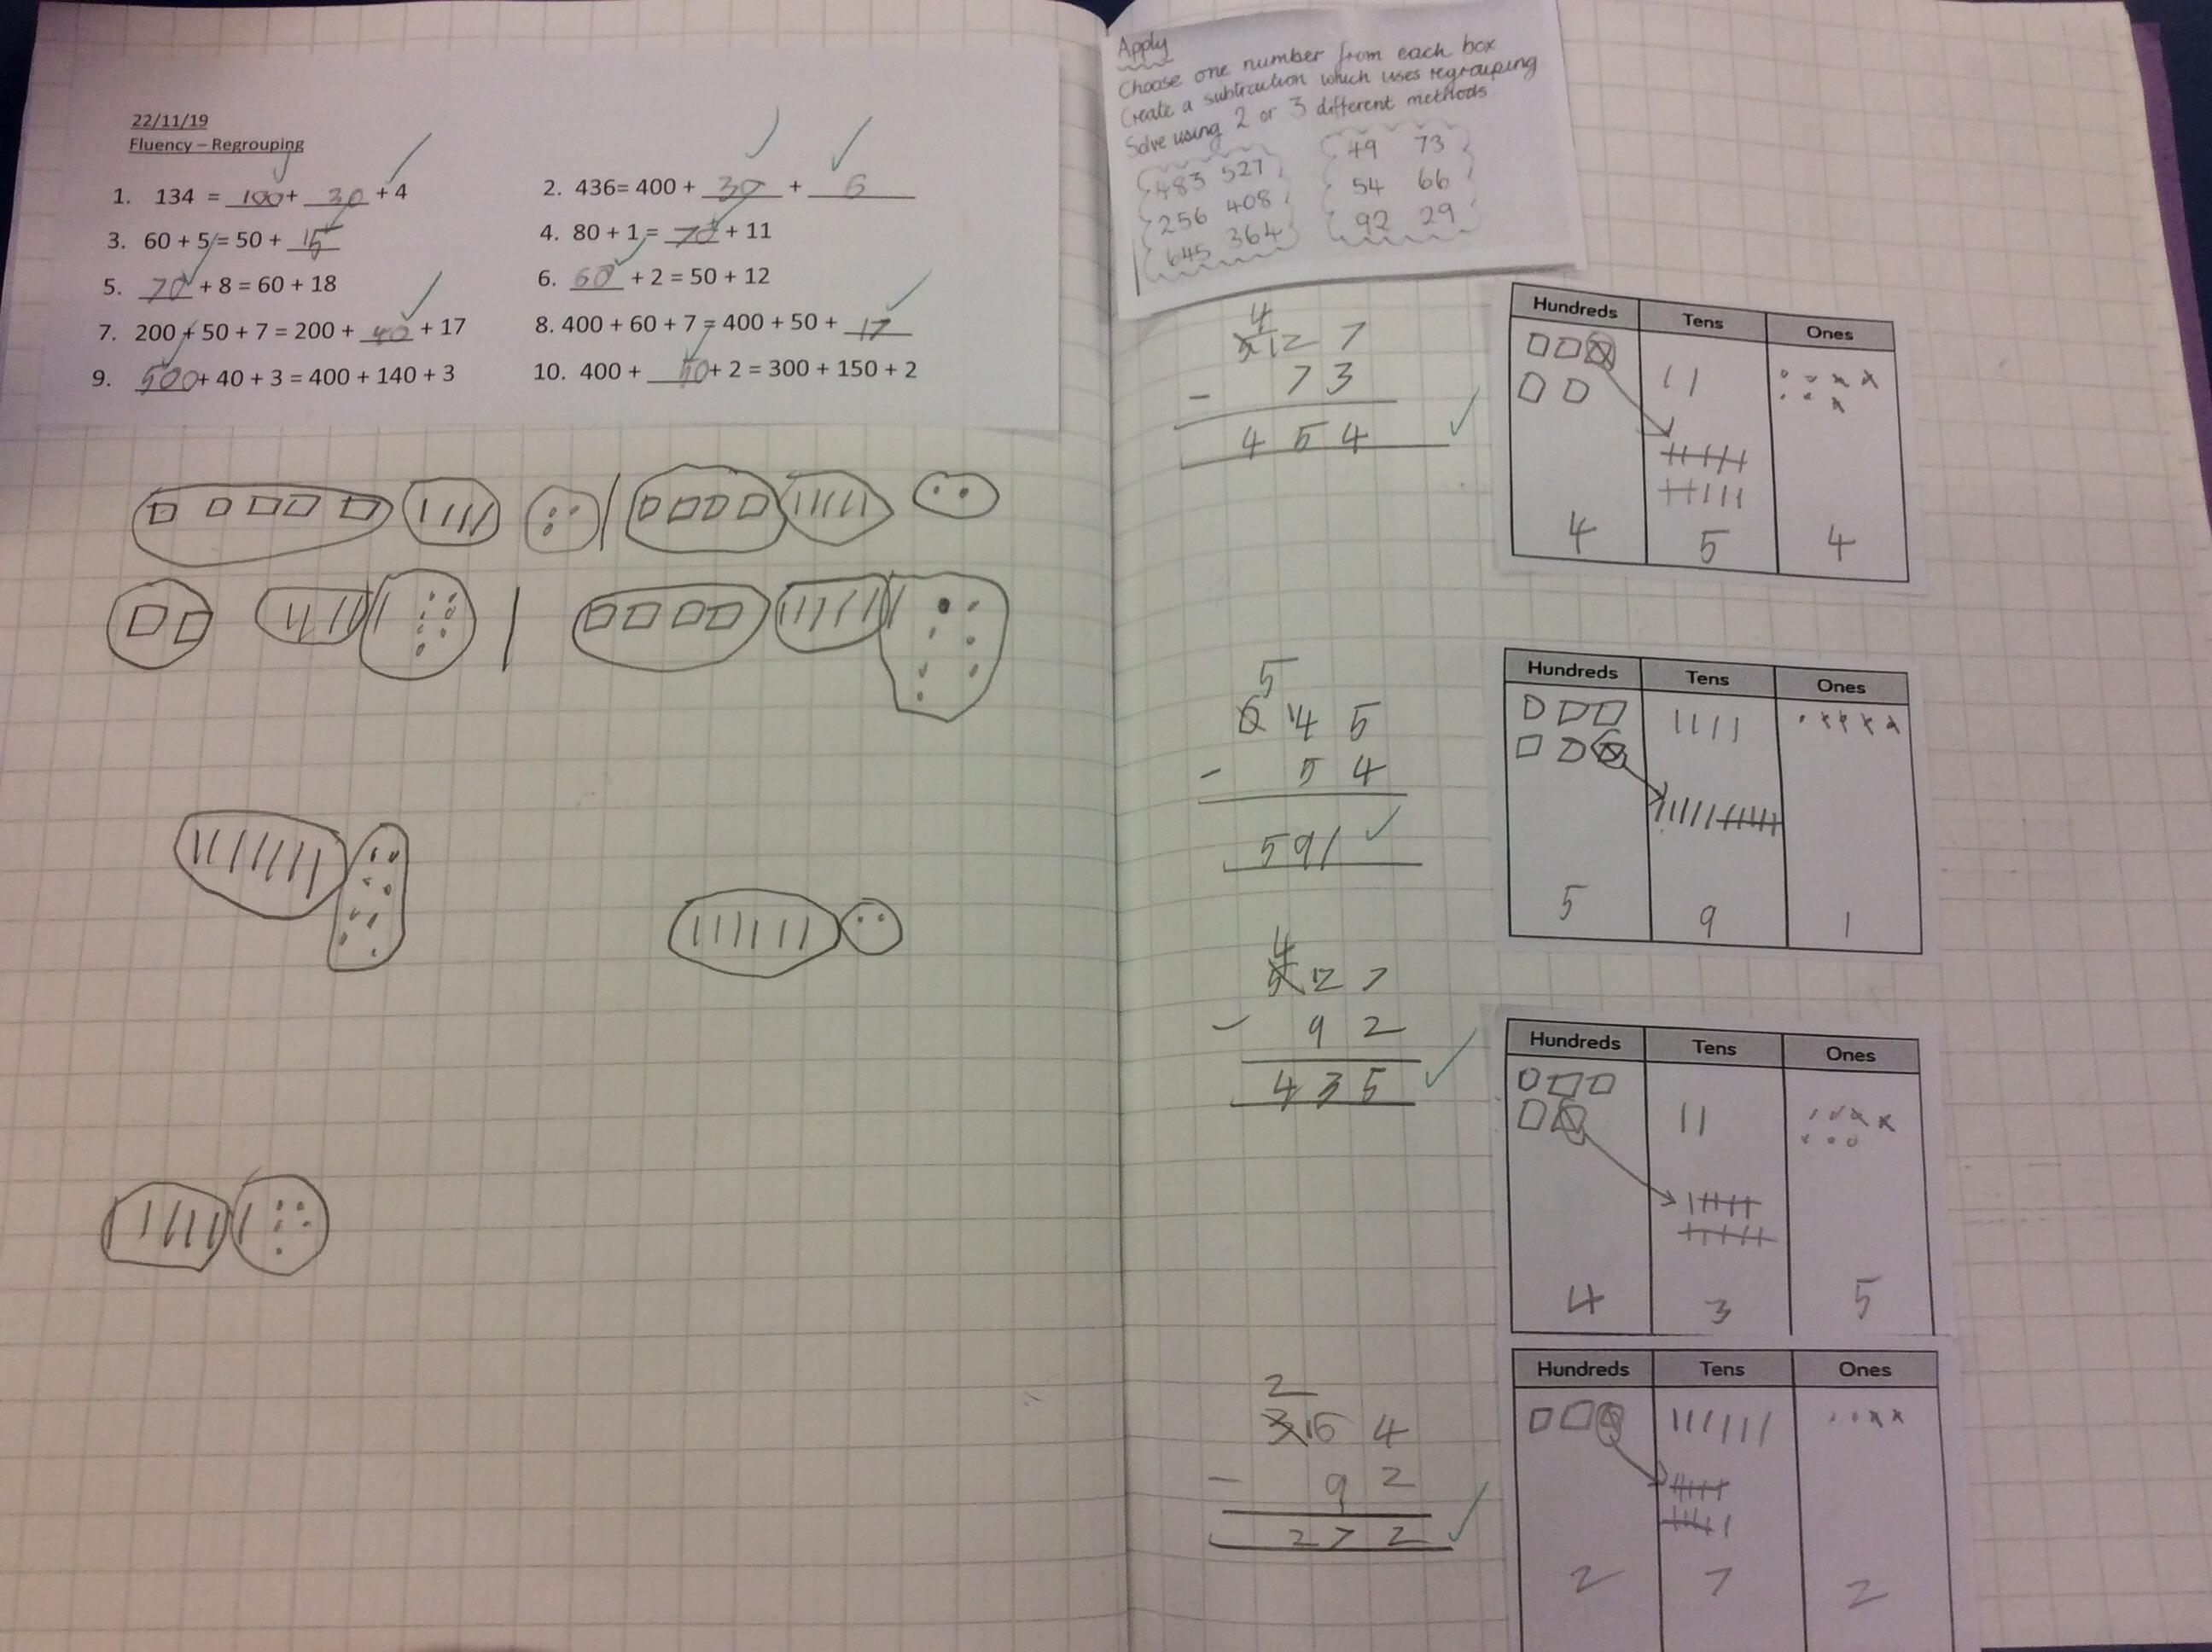 22/11/19
Fluency – Regrouping
1. 134 = 100 + 30 + 4
2. 436= 400 + 30 + 6
3. 60 + 5 = 50 + 15
4. 80 + 1 = 70 + 11
5. 70 + 8 = 60 + 18
6. 60 + 2 = 50 + 12
7. 200 + 50 + 7 = 200 + 40 + 17
8. 400 + 60 + 7 = 400 + 50 + 17
9. 500 + 40 + 3 = 400 + 140 + 3
10. 400 + 50 + 2 = 300 + 150 + 2
Apply
Choose one number from each box
Create a subtraction which uses regrouping
Solve using 2 or 3 different methods
483 527
256 408
645 364
49 73
54 66
92 29
4
5 12 7
- 7 3
4 5 4
Hundreds Tens Ones
4 5 4
5
6 14 5
- 5 4
5 9 1
Hundreds Tens Ones
5 9 1
4
5 12 7
- 9 2
4 3 5
Hundreds Tens Ones
4 3 5
2
3 16 4
- 9 2
2 7 2
Hundreds Tens Ones
2 7 2